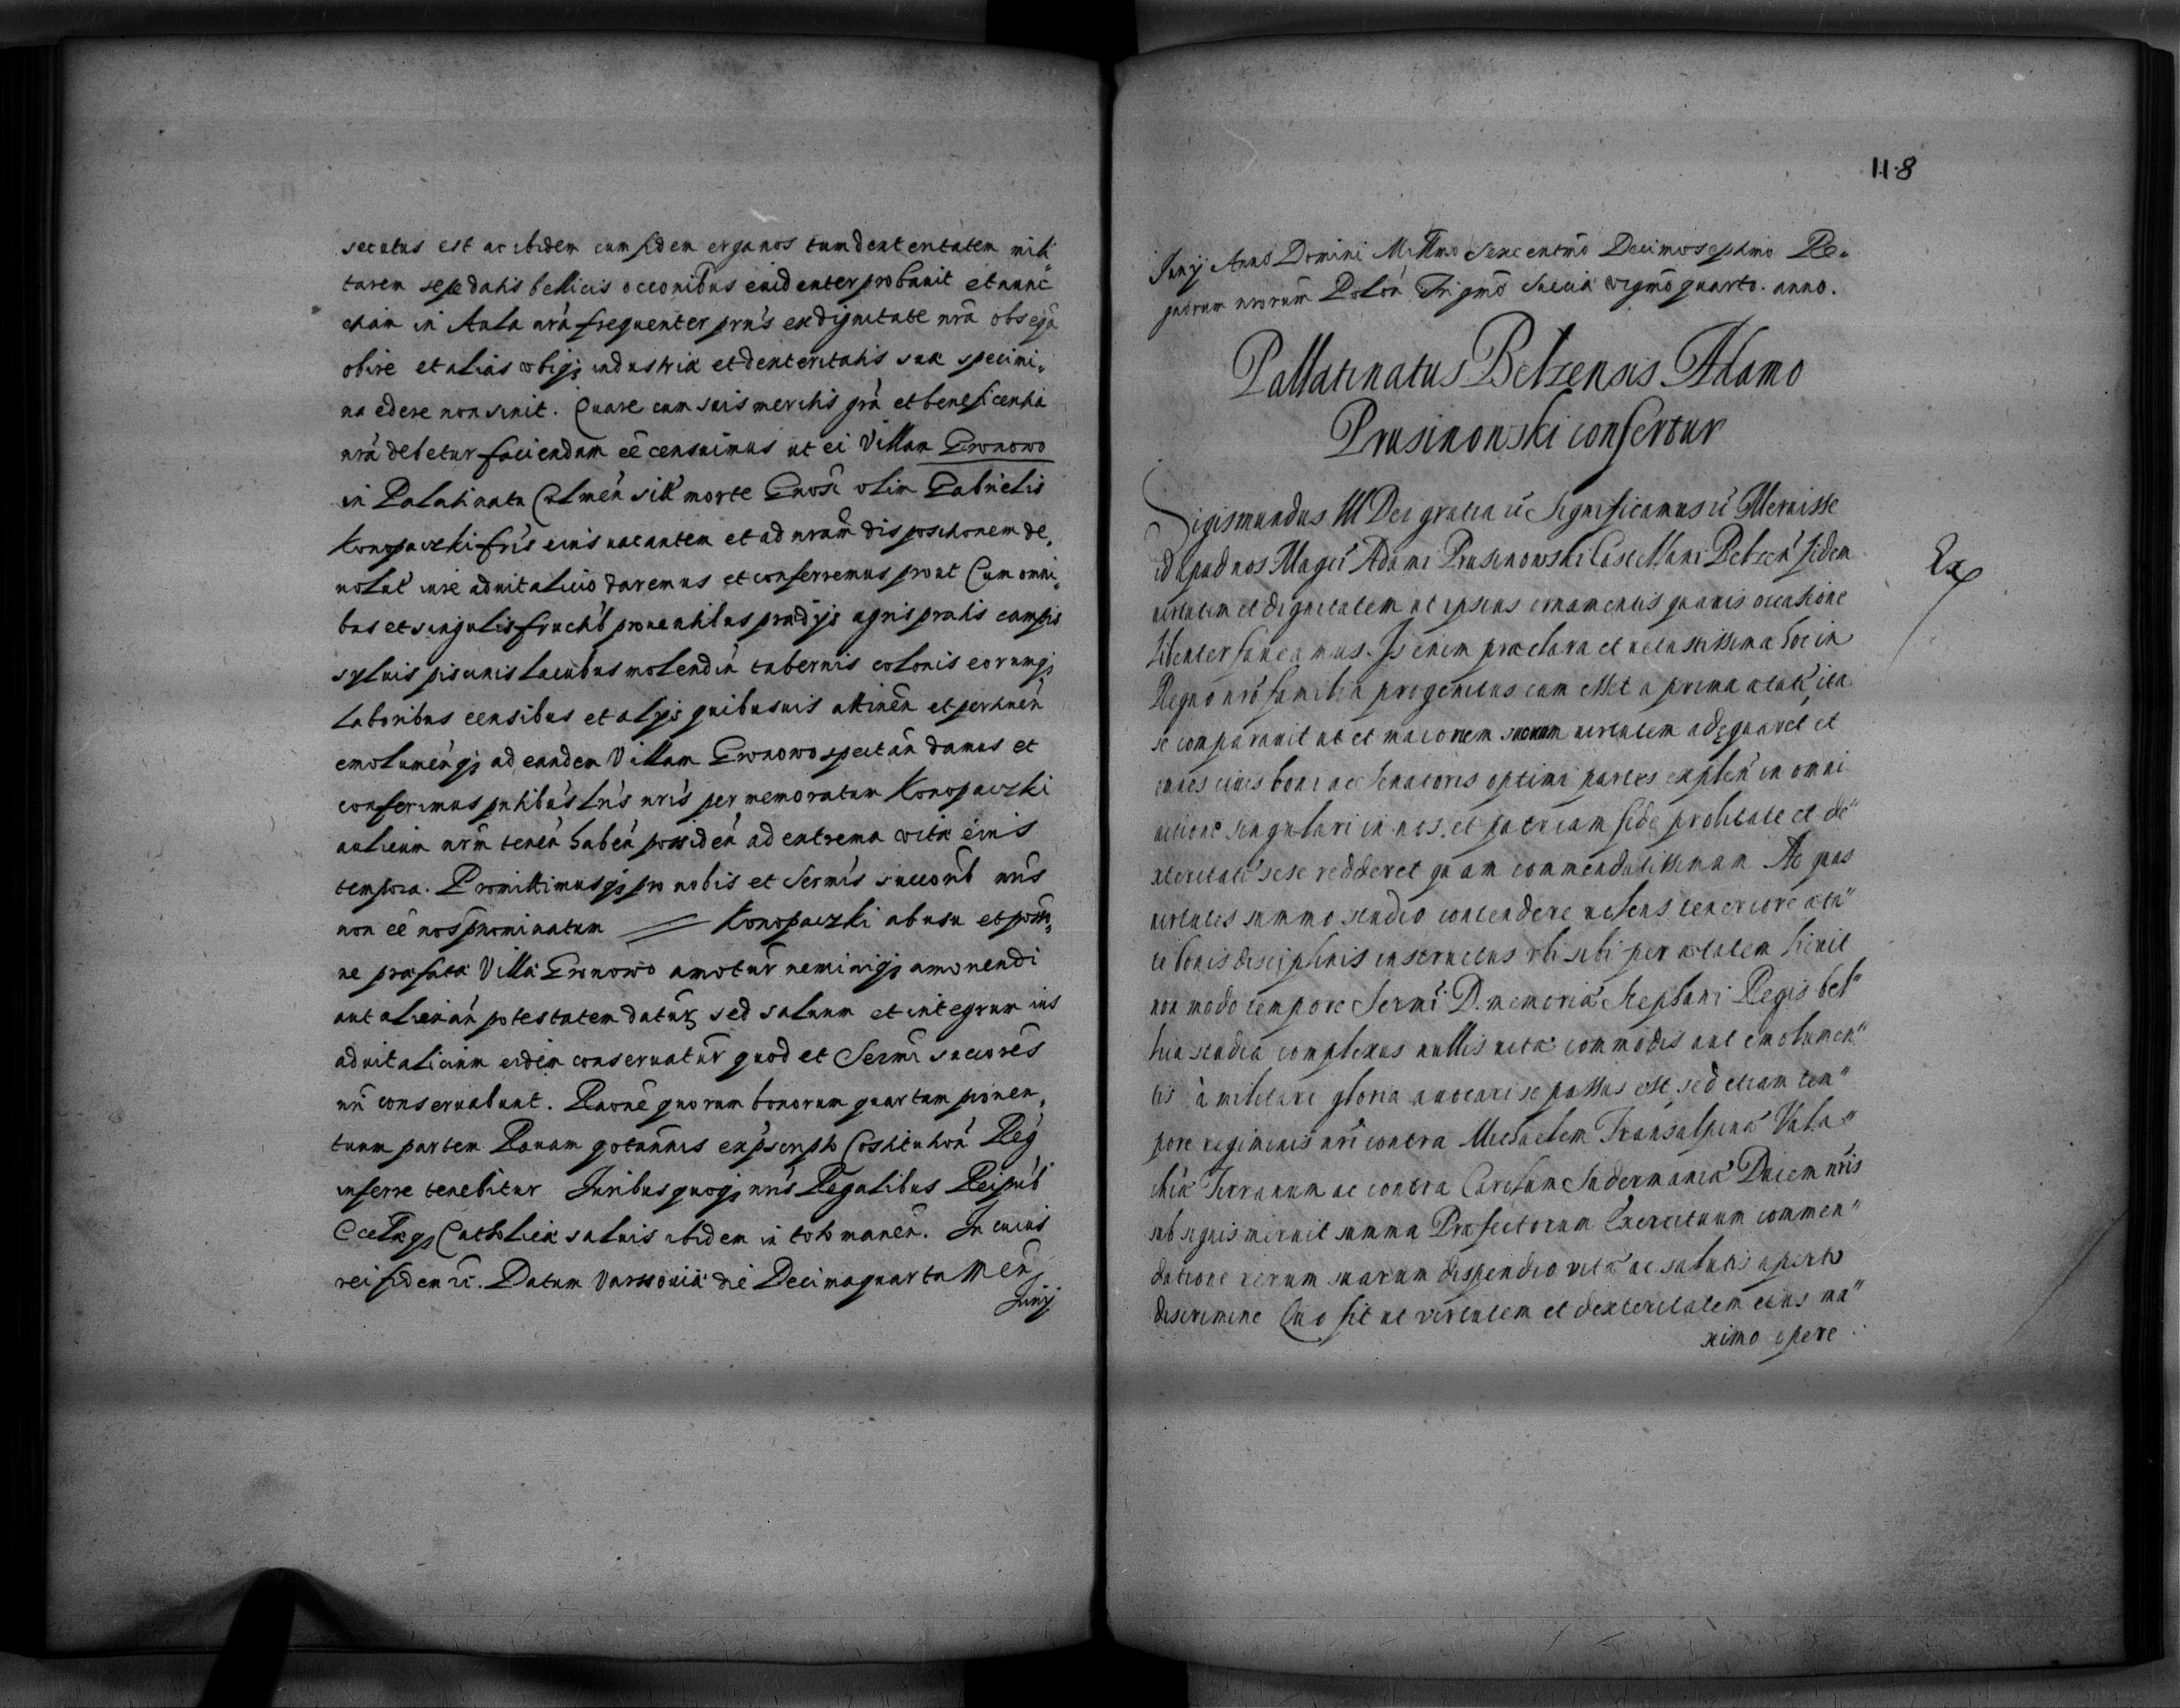 secutus est ac ibidem cum fidem erga nos tum dexteritatem mili
tarem sepe datis bellicis occonibus euidenter probauit et nunc
etiam in Aula nrã frequenter prñs ex dignitate nrã obseqã
obire et alias vbiqȝ industriæ et dexteritatis suæ specimi„
na edere non sinit. Quare cum suis meritis grã et beneficentia
nrã debetur faciendum eẽ censuimus ut ei Villam Gronowo
in Palatinatu Culmeñ sitã morte Gnosi olim Gabrielis
Konopaczki fris eius uacantem et ad nram dispositionem de„
uolut iure aduitalicio daremus et conferremus prout Cum omni„
bus et singulis fructib prouentibus prædijs agris pratis campis
syluis piscinis lacubus molendiñ tabernis colonis eorumqȝ
laboribus censibus et alijs quibusuis attineñ et pertineñ
emolumenqȝ ad eandem Villam Gronowo spectañ damus et
conferimus pntibus lris nris per memoratum Konopaczki
aulicum nrm teneñ habeñ possideñ ad extrema vitæ eius
tempora. Promittimusqȝ pro nobis et Sermis succorib nris
non eẽ nos prnominatum Konopaczki ab usu et posso„
ne præfatæ Villæ Gronowo amotur neminiqȝ amouendi
aut alienañ potestatem datur sed saluum et integrum ius
aduitalicium eidem conseruatur quod et Sermi succores
nri conseruabunt. Raone quorum bonorum quartam prouen„
tuum partem Rauam quotannis ex prscripto Costitutioñ Regñ
inferre tenebitur Juribus quoqȝ nris Regalibus Reipub
Ecclæqȝ Catholicæ saluis ibidem in toto maneñ. In cuius
rei fidem &c. Datum Varssouiæ die Decima quarta Meñ
Junij
118
Junij Anno Domini Millmo Sexcentmo Decimoseptimo Re„
gnorum nrorum Poloñ Trigmo Sueciæ vigmo quarto. anno.
Pallatinatus Belzensis Adamo
Prusinonski confertur
Sigismundus III Dei gratia &c Significamus &c Meruisse
id apud nos Magci Adami Prusinowski Castellani Belzeñ fidem
Ex
virtutem et dignitatem ut ipsius ornamentis quauis occasione
libenter faueamus. Is enim præclara et uetustissima hoc in
Regno nro familia progenitus cum esset a prima ætate ita
se comparauit ut et maiorem suorum uirtutem adęquaret et
omnes ciuis boni ac Senatoris optimi partes expleñ in omni
actione singulari in nos et patriam fide probitate et de„
xteritate sese redderet quam commendatissimum Ac quas
virtutes summo studio contendere uisens teneriore æta„
te bonis disciplinis instructus vbi sibi per ætatem licuit
non modo tempore Sermi D. memoriæ Stephani Regis bel„
lica studia complexus nullis uitæ commodis aut emolumen„
tis à militari gloria auocari se passus est sed etiam tem„
pore regiminis nri contra Michaelem Transalpinæ Vala„
chiæ Tirranum ac contra Carolum Sudermaniæ Ducem nris
sub signis meruit summa Præfectorum Exercituum commen„
datione rerum suarum dispendio vitæ ac salutis aperto
discrimine Quo fit ut virtutem et dexteritatem eius ma„
ximo opere